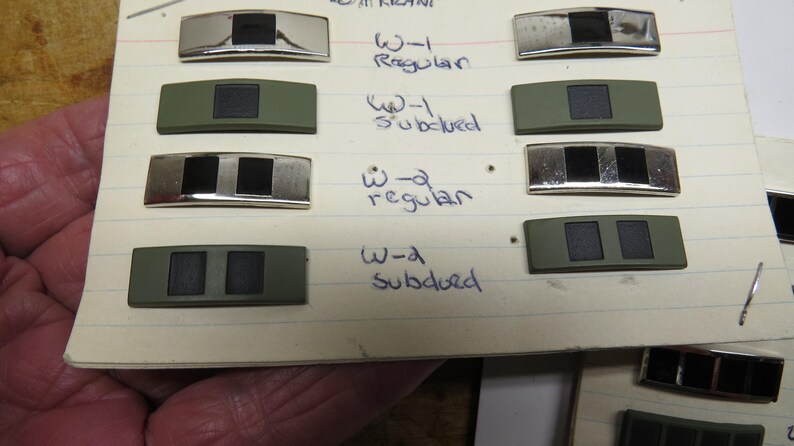 W-1
Regular
W-1
Subdued
W-2
regular
W-2
Subdued